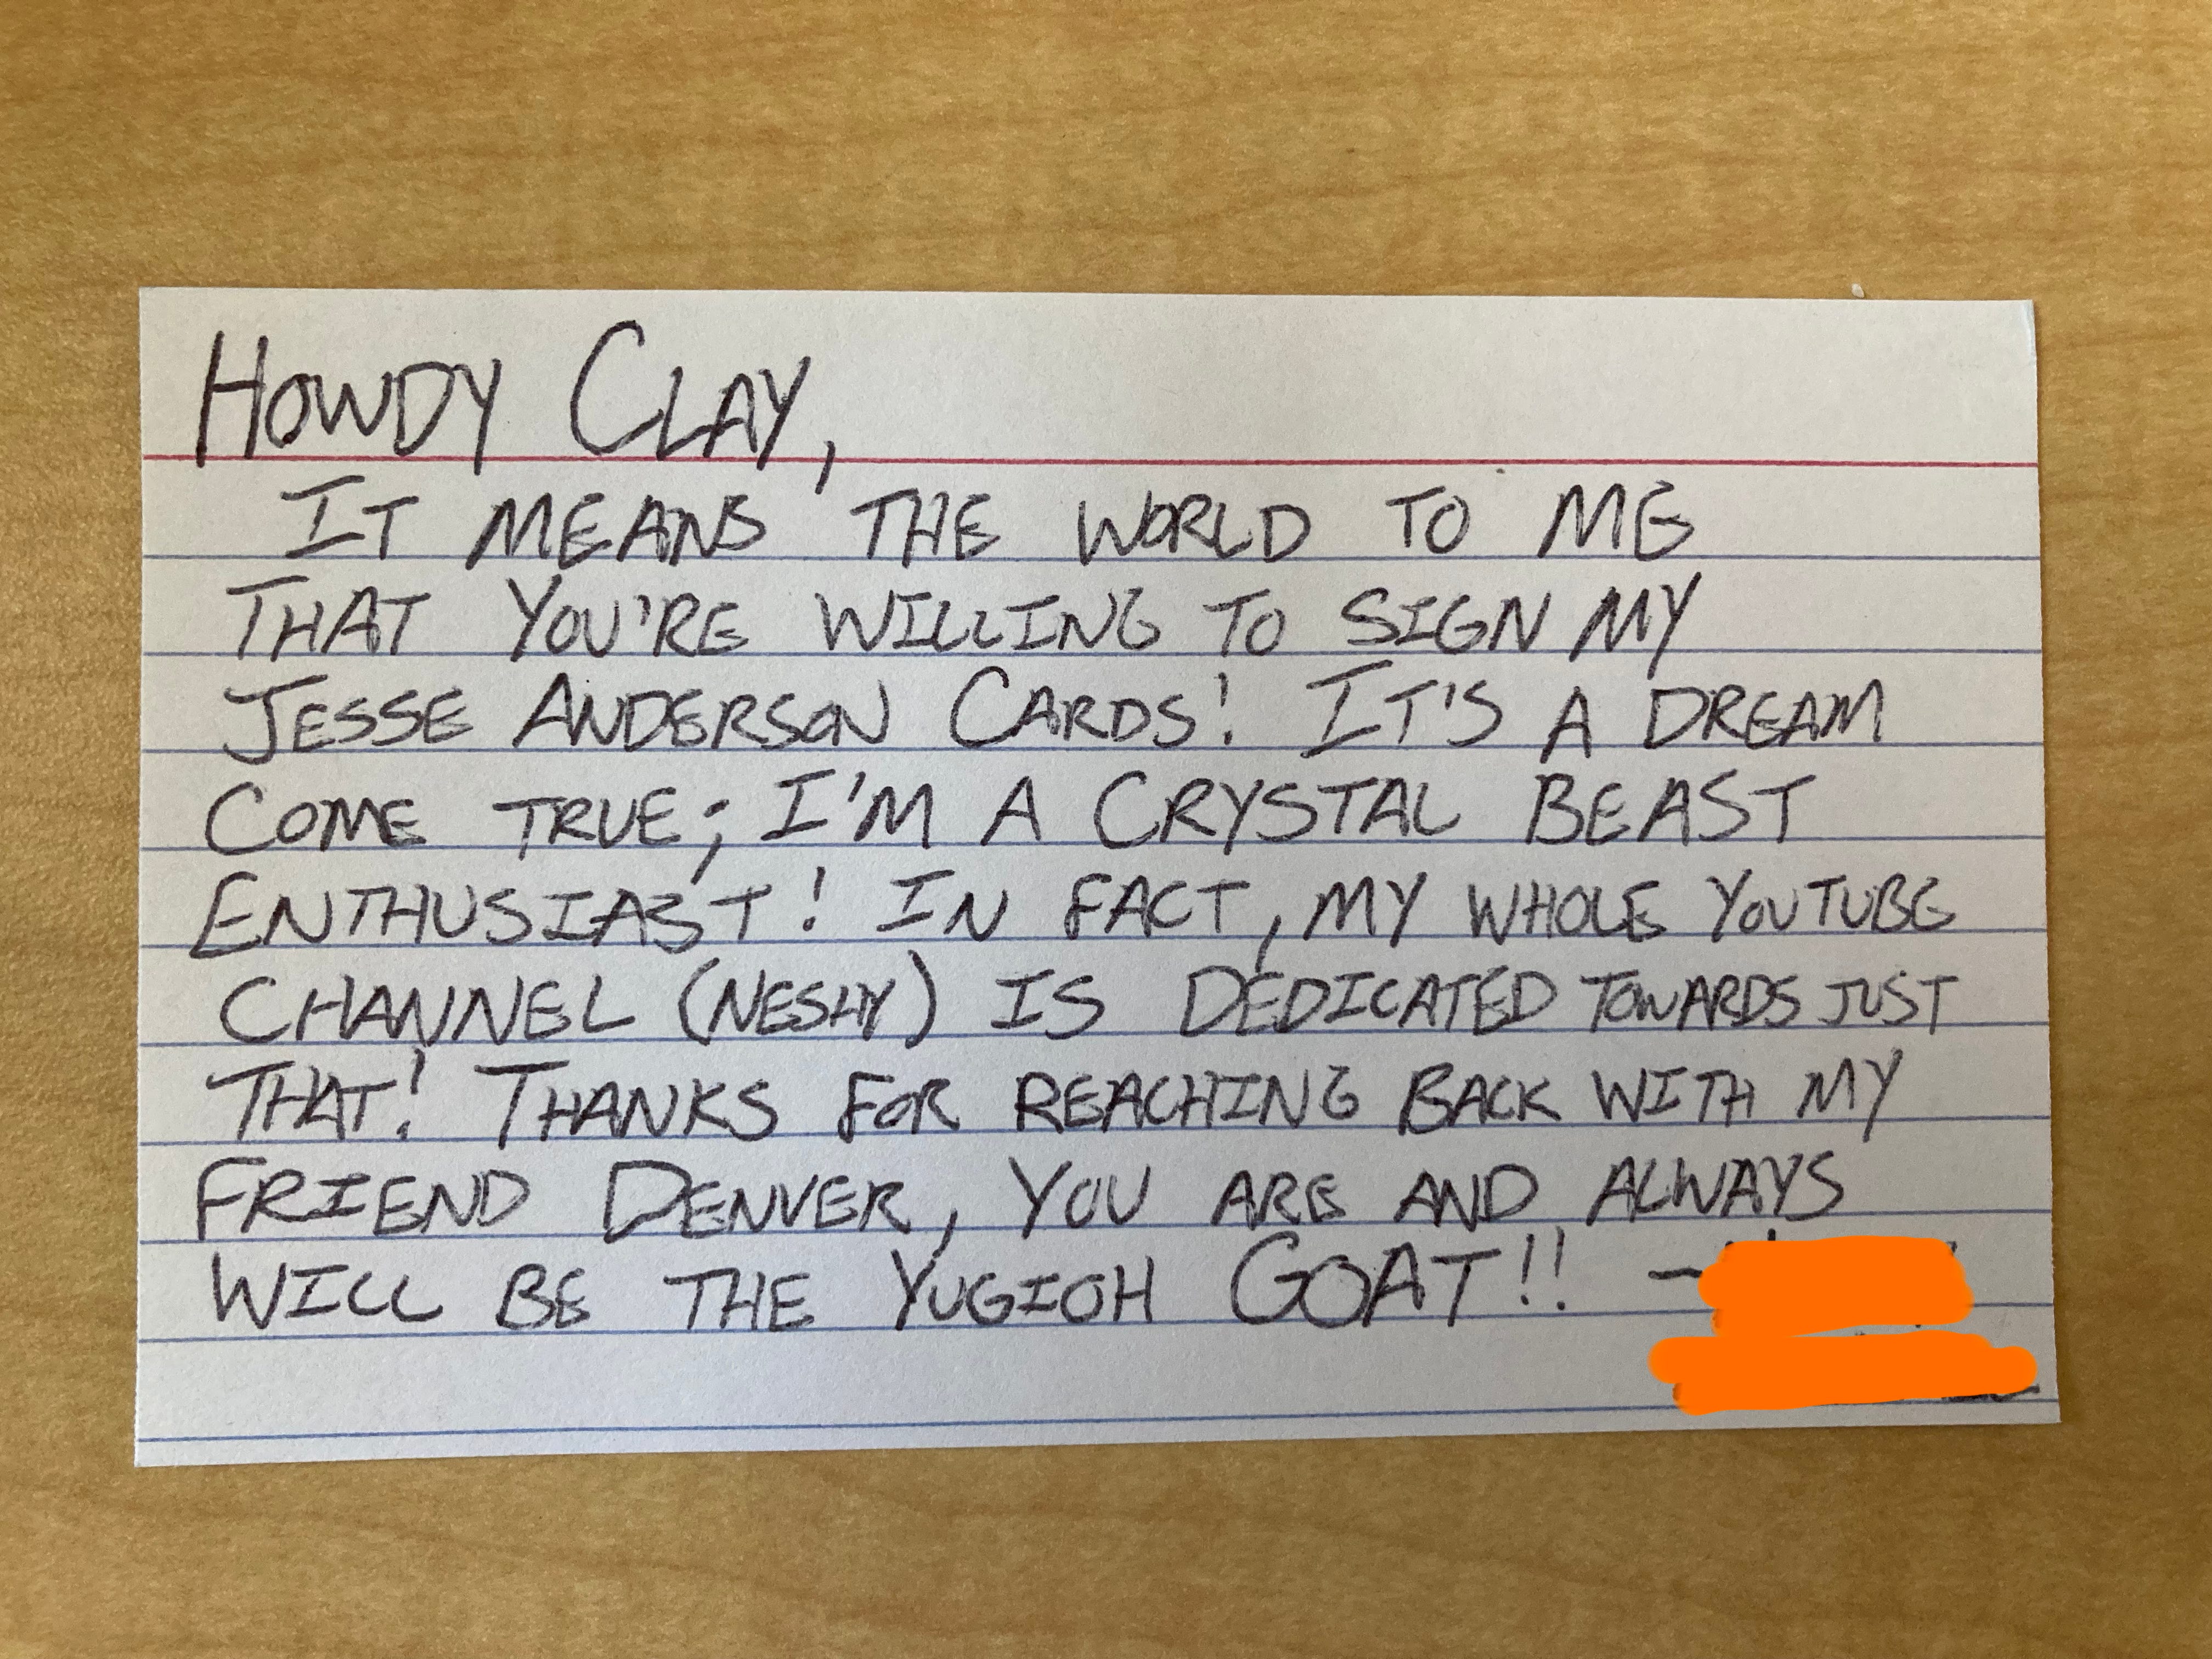 HOWDY CLAY,
IT MEANS THE WORLD TO ME
THAT YOU'RE WILLING TO SIGN MY
JESSE ANDERSON CARDS! IT'S A DREAM
COME TRUE; I'M A CRYSTAL BEAST
ENTHUSIAST! IN FACT, MY WHOLE YOUTUBE
CHANNEL (NESHY) IS DEDICATED TOWARDS JUST
THAT! THANKS FOR REACHING BACK WITH MY
FRIEND DENVER, YOU ARE AND ALWAYS
WILL BE THE YUGIOH GOAT!! -